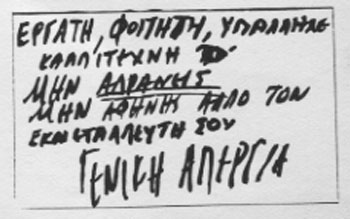 ΕΡΓΑΤΗ, ΦΟΙΤΗΤΗ, ΥΠΑΛΛΗΛΕ
ΚΑΛΛΙΤΕΧΝΗ
ΜΗΝ ΑΔΡΑΝΕΙΣ
ΜΗΝ ΑΦΗΝΗΣ ΑΛΛΟ ΤΟΝ
ΕΚΜΕΤΑΛΛΕΥΤΗ ΣΟΥ
ΓΕΝΙΚΗ ΑΠΕΡΓΙΑ